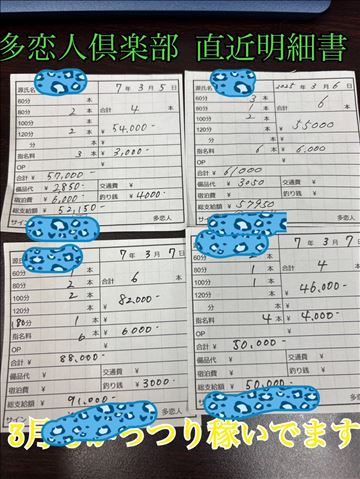 多恋人倶楽部 直近明細書
源氏名
7年 3月 5日
60分 本
80分 2本 合計 4本
100分 本
120分 2本 ¥54,000-
¥
指名料 3本 ¥3,000-
OP
合計 ¥57,000-
備品代 ¥2,850- 交通費 ¥
宿泊費 ¥6,000- 釣り銭 ¥4000-
総支給額 ¥52,150-
サイン 多恋人
源氏名
2025年 3月 6日
60分 3本
80分 本 合計 6本
100分 本
120分 本 ¥55000
¥
指名料 6本 ¥6,000
OP
合計 ¥61000
備品代 ¥3050 交通費 ¥
宿泊費 ¥ 釣り銭 ¥
総支給額 ¥57950
多恋人
源氏名
7年 3月 7日
60分 1本
80分 2本 合計 6本
100分 2本
120分 ¥82,000-
180分 1本 ¥
指名料 6本 ¥6000-
OP
合計 ¥88,000-
備品代 ¥ 交通費 ¥
宿泊費 ¥ 釣り銭 ¥3000-
総支給額 ¥91,000-
サイン 多恋人
7年 3月 7日
60分 2本
80分 1本 合計 4本
100分 1本
120分 本 ¥46,000-
¥
指名料 4本 ¥4,000-
OP
合計 ¥50,000-
備品代 ¥ 交通費 ¥
宿泊費 ¥ 釣り銭 ¥
総支給額 ¥50,000-
サイン 多恋人
3月もがっつり稼いでます